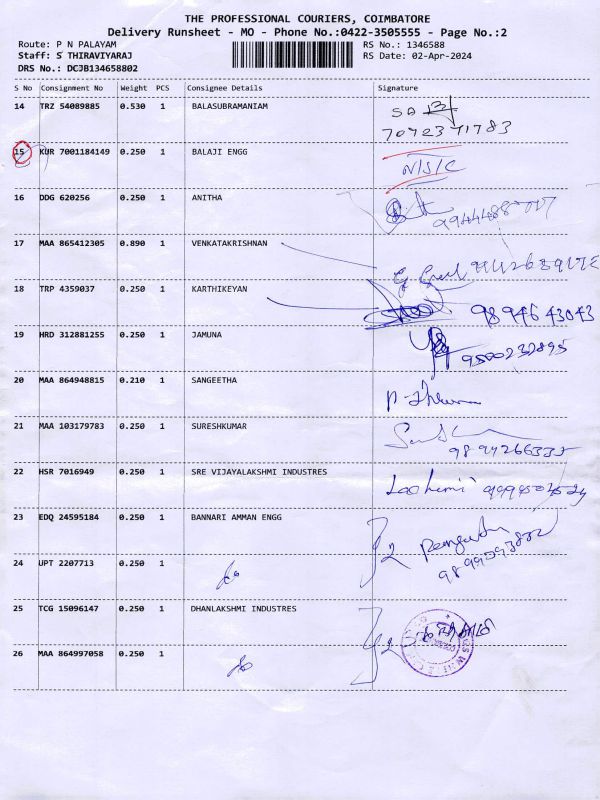 THE PROFESSIONAL COURIERS, COIMBATORE
Delivery Runsheet - MO - Phone No.:0422-3505555 - Page No.:2
Route: P N PALAYAM RS No.: 1346588
Staff: S THIRAVIYARAJ RS Date: 02-Apr-2024
DRS No.: DCJB134658802
S No Consignment No Weight PCS Consignee Details Signature
14 TRZ 54089885 0.530 1 BALASUBRAMANIAM
7092371783
15 KUR 7001184149 0.250 1 BALAJI ENGG N/S/C
16 DDG 620256 0.250 1 ANITHA
17 MAA 865412305 0.890 1 VENKATAKRISHNAN
18 TRP 4359037 0.250 1 KARTHIKEYAN 9894643043
19 HRD 312881255 0.250 1 JAMUNA 9500232895
20 MAA 864948815 0.210 1 SANGEETHA
21 MAA 103179783 0.250 1 SURESHKUMAR
22 HSR 7016949 0.250 1 SRE VIJAYALAKSHMI INDUSTRES
23 EDQ 24595184 0.250 1 BANNARI AMMAN ENGG 2
24 UPT 2207713 0.250 1
25 TCG 15096147 0.250 1 DHANLAKSHMI INDUSTRES 2
26 MAA 864997058 0.250 1